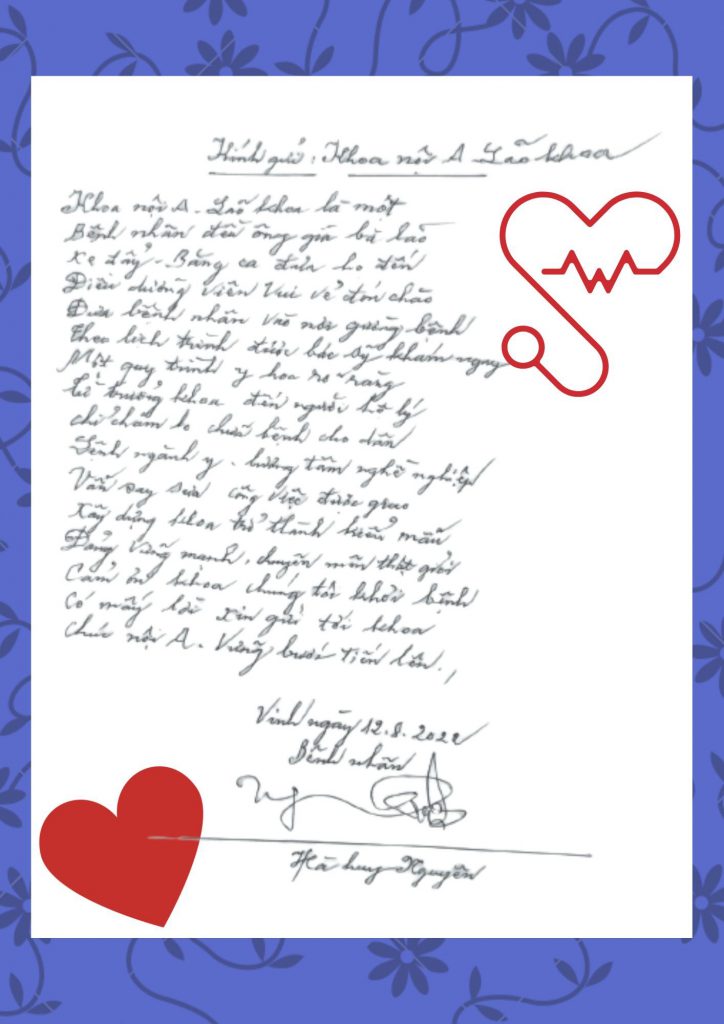 Kính gửi: Khoa nội A - Lão khoa
Khoa nội A - Lão khoa là một
Bệnh nhân đến ông già bà lão
Xe đẩy - Băng ca đưa họ đến
Điều dưỡng viên Vui vẻ đón chào
Đưa bệnh nhân vào nơi giường bệnh
Theo lịch trình được bác sỹ khám ngay
Một quy trình y học rõ ràng
Từ trưởng khoa đến người hộ lý
chỉ chăm lo chữa bệnh cho dân
Lệnh ngành y - lương tâm nghề nghiệp
Vẫn say sưa công việc được giao
Xây dựng khoa trở thành kiểu mẫu
Đảng vững mạnh, chuyên môn thật giỏi
Cảm ơn khoa chúng tôi khỏi bệnh
Có mấy lời xin gửi tới khoa
chúc nội A. Vững bước tiến lên.,
Vinh ngày 12.8.2022
Bệnh nhân
Hà huy Nguyên